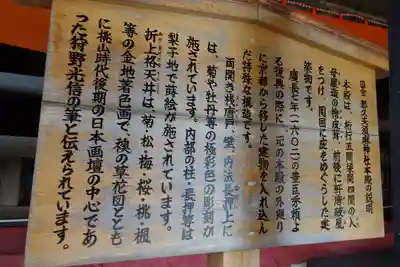 国宝 都久夫須麻神社本殿の説明
本殿は、桁行五間梁間四間の入
母屋造の檜皮葺、前後に軒唐破風
をつけ、周囲に庇をめぐらした建
築物です。
慶長七年(一六〇二)の豊臣秀頼よ
る復興の際に、元の本殿の外廻り
に京都から移した建物を入れ込ん
だ特殊な構造です。
両開き桟唐戸、壁、内法長押上に
は、菊や牡丹等の極彩色の彫刻が
施されています。内部の柱・長押等は
梨子地で蒔絵が施されています。
折上格天井は、菊・松・梅・桜・桃・楓
等の金地着色画で、襖の草花図ととも
に桃山時代後期の日本画壇の中心であ
った狩野光信の筆と伝えられています。